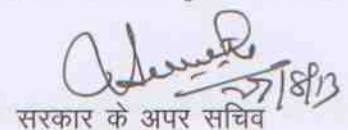 27/8/13
सरकार के अपर सचिव